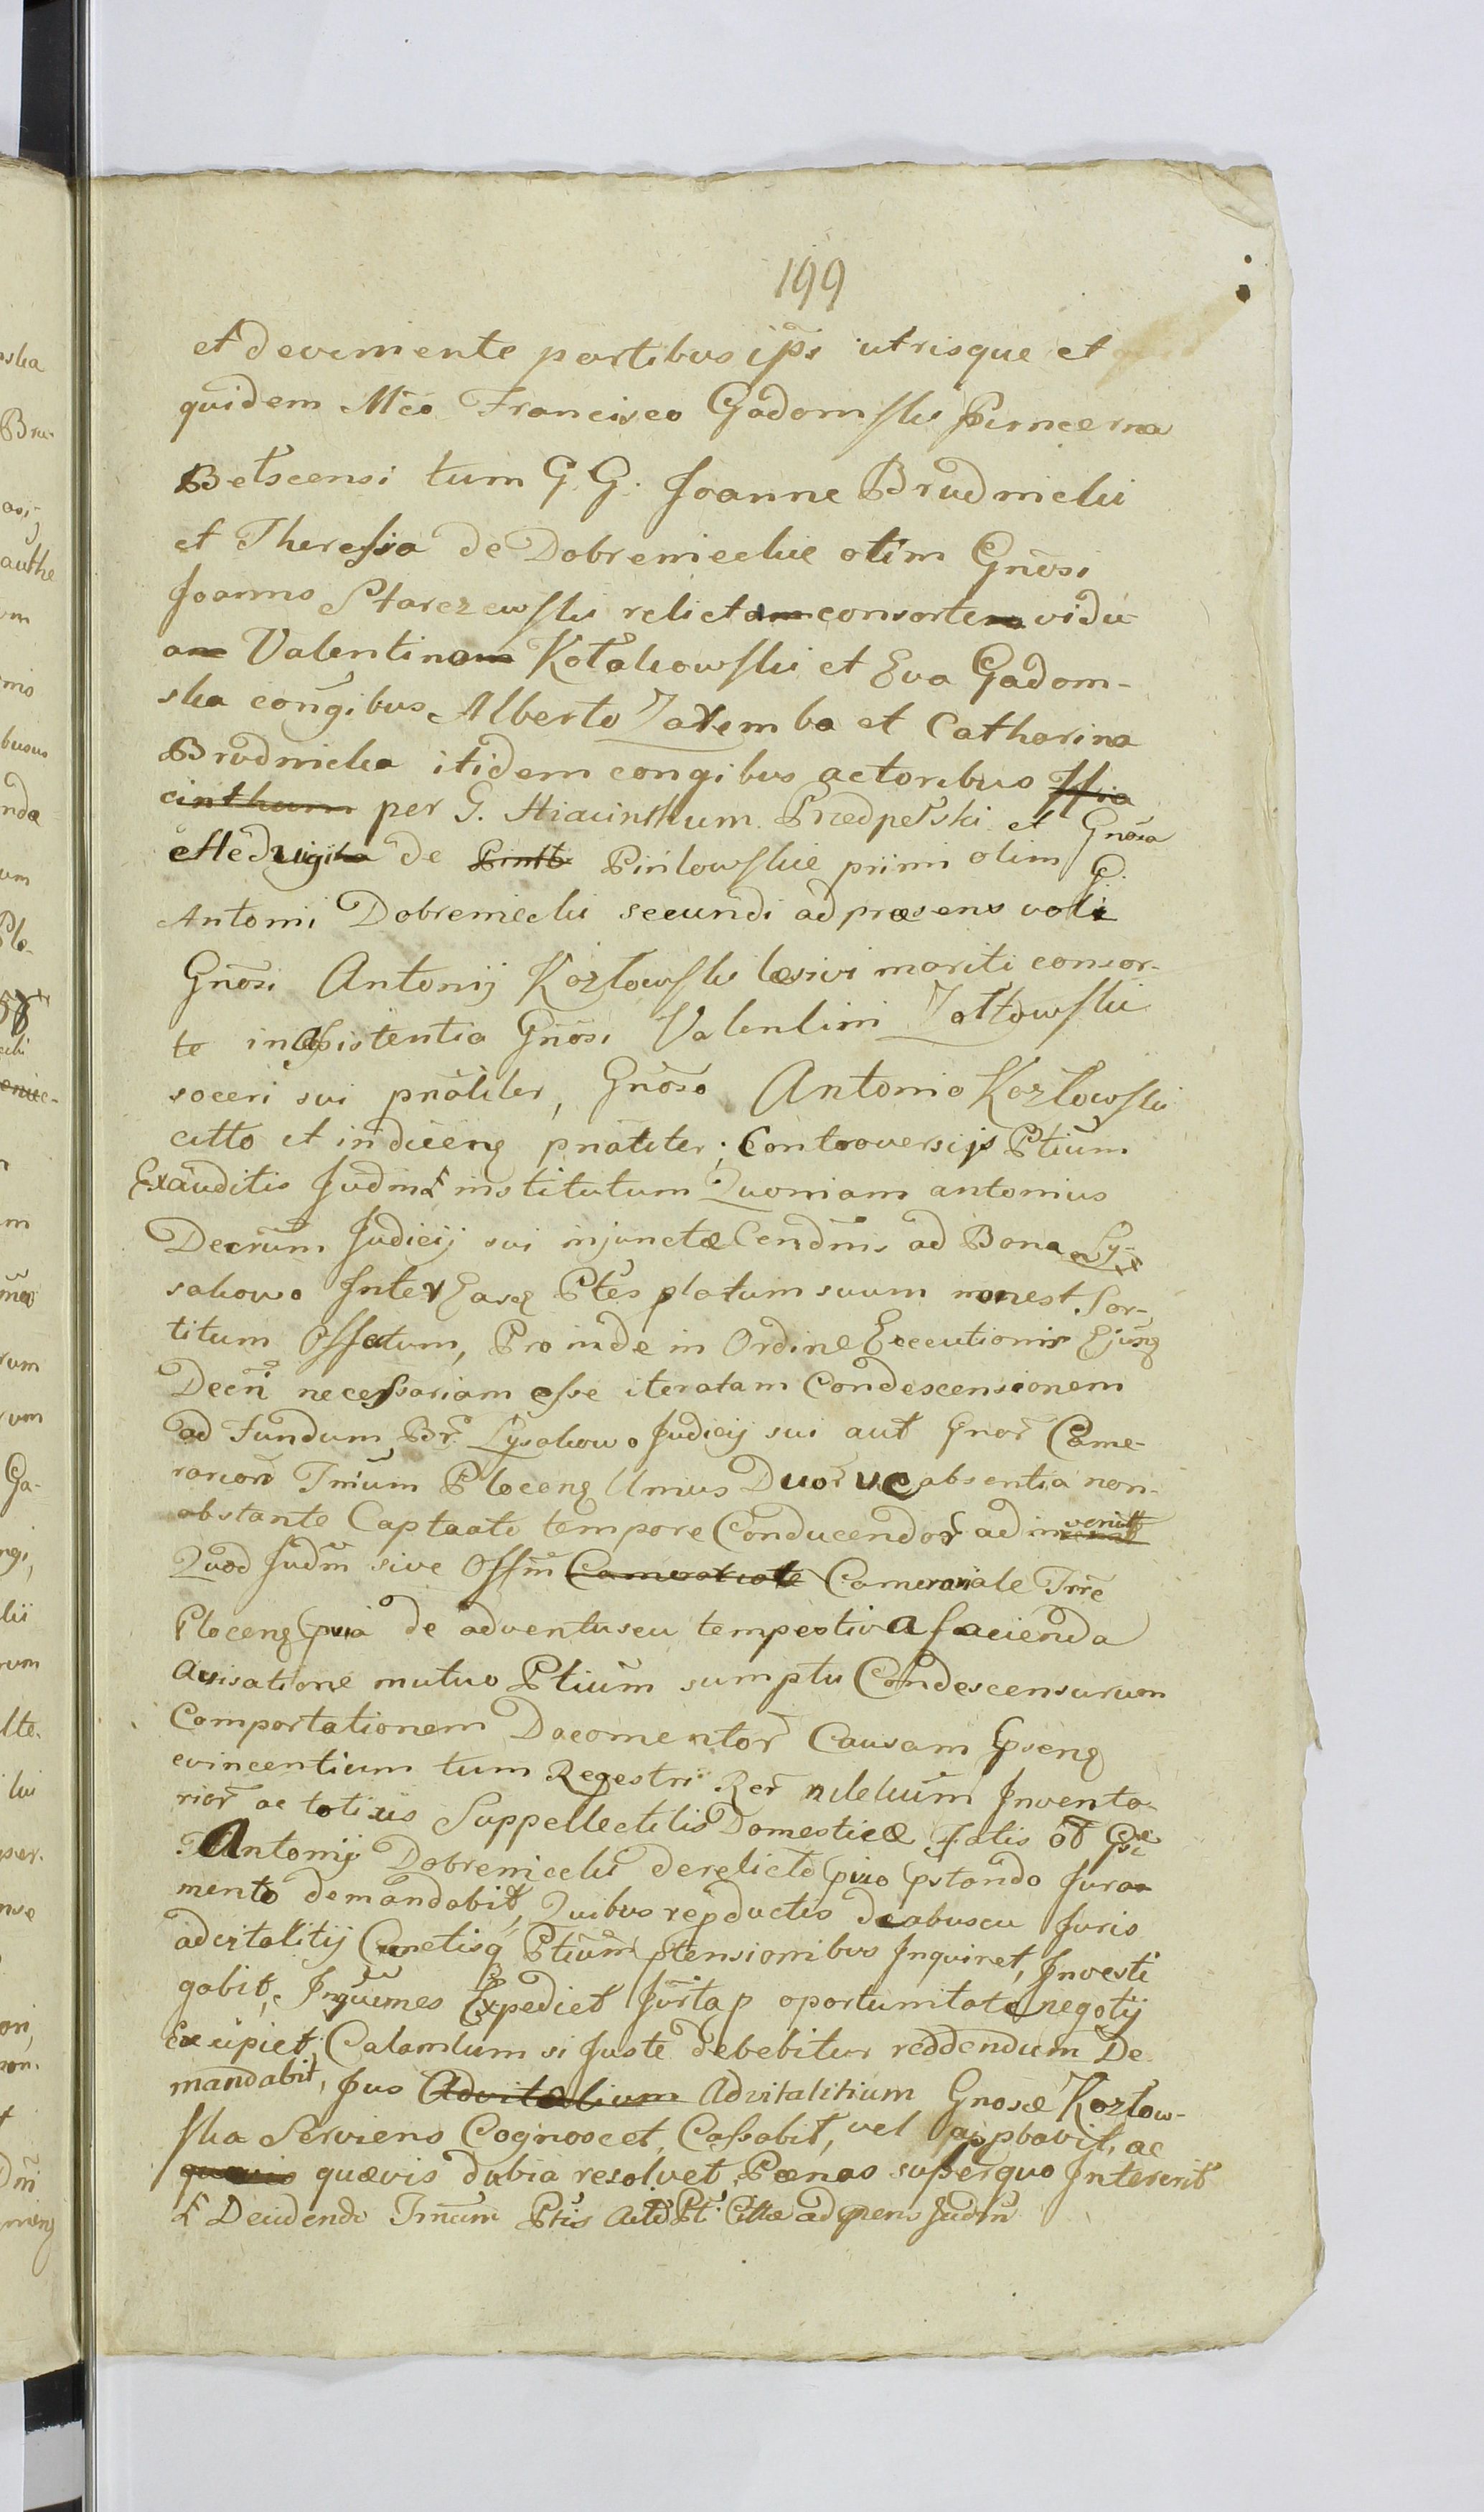 199
et deveniente partibus ip̃s utrisque et
quidem Mco Francisco Gadomski Pincerna
Bełscensi tum G. G. Joanne Brudnicki
et Theressia de Dobrenieckie olim Gnosi
Joannis Starczewski relictam consortem vidu-
am Valentinam Kołakowski et Eva Gadom-
ska congibus Alberto Zaremba et Catharina
Brudnicka itidem congibus actoribus Hia
cinthum per G. Hiacinthum Przedpełski et Gnosa
Hedvigim de Pintb Pintowskie primi olim G.
Antonii Dobreniecki secundi ad præsens voti
Gnosi Antonij Kozłowski læsivi mariti consor-
te in assistentia Gnosi Valentini Zołtowski
soceri sui pnaliter, Gnoso Antonio Kozłowski
citto et indiceng pnaliter; Controversijs Ptium
Exauditis Judm institutum Quoniam antonius
Decrum Judicij sui injunctæ Cendnis ad Bona Ly-
sakowo Inter Easq Ptes platum suum non est Sor-
titum Effatum, Proinde in Ordine Executionis Ejusq
Decri necessariam esse iteratam Condescensionem
ad Fundum Br Lysakowo Judicij sui aut Gnor Came-
rarior Trium Ploceng Unius Duor ve absentia non
obstante Captaato tempore Conducendor ad invenit
Quod Judm sive Offm Cameratiale Cameraniale Trre
Ploceng pvia de adventu seu tempestiva facienda
avisatione mutuo Ptium sumptu Condescensurum
Comportationem Docomentor Causam Pseng
evincentium tum Regestri Rer mlelium Inventa-
rior ac totius Suppellectilis Domesticæ Fatis ol Gsi
Antonij Dobreniecki derelicto pvio pstando Jura-
mento demandabit, Quibus repductis deabuscu Juris
advitalitij Cunctisq Ptium ptensionibus Inquiret, Investi
gabit, Inquines Expediet Juxta p oportunitate negotij
Excipiet, Calculum si Juste debebitur reddendum De
mandabit, Jus Advitalium Advitalitium Gnosæ Kozłow-
ska Serviens Cognoscet, Cassabit, vel appbabit, ac
quævis quævis dubia resolvet Pænas super quo Intererit
Decidendo Trnum Ptis Actæ Pt Cittæ ad pens Judm